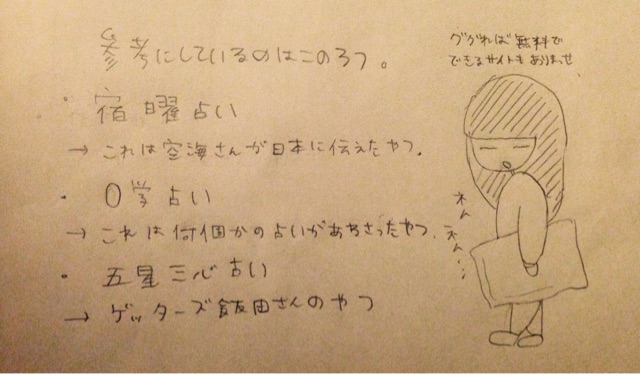 参考にしているのはこの3つ。
・宿曜占い
→ これは空海さんが日本に伝えたやつ。
・0学占い
→ これは何個かの占いがあわさったやつ。
・五星三心占い
→ ゲッターズ飯田さんのやつ
ググれば無料で
できるサイトもありまっせ
ネム
ネム…